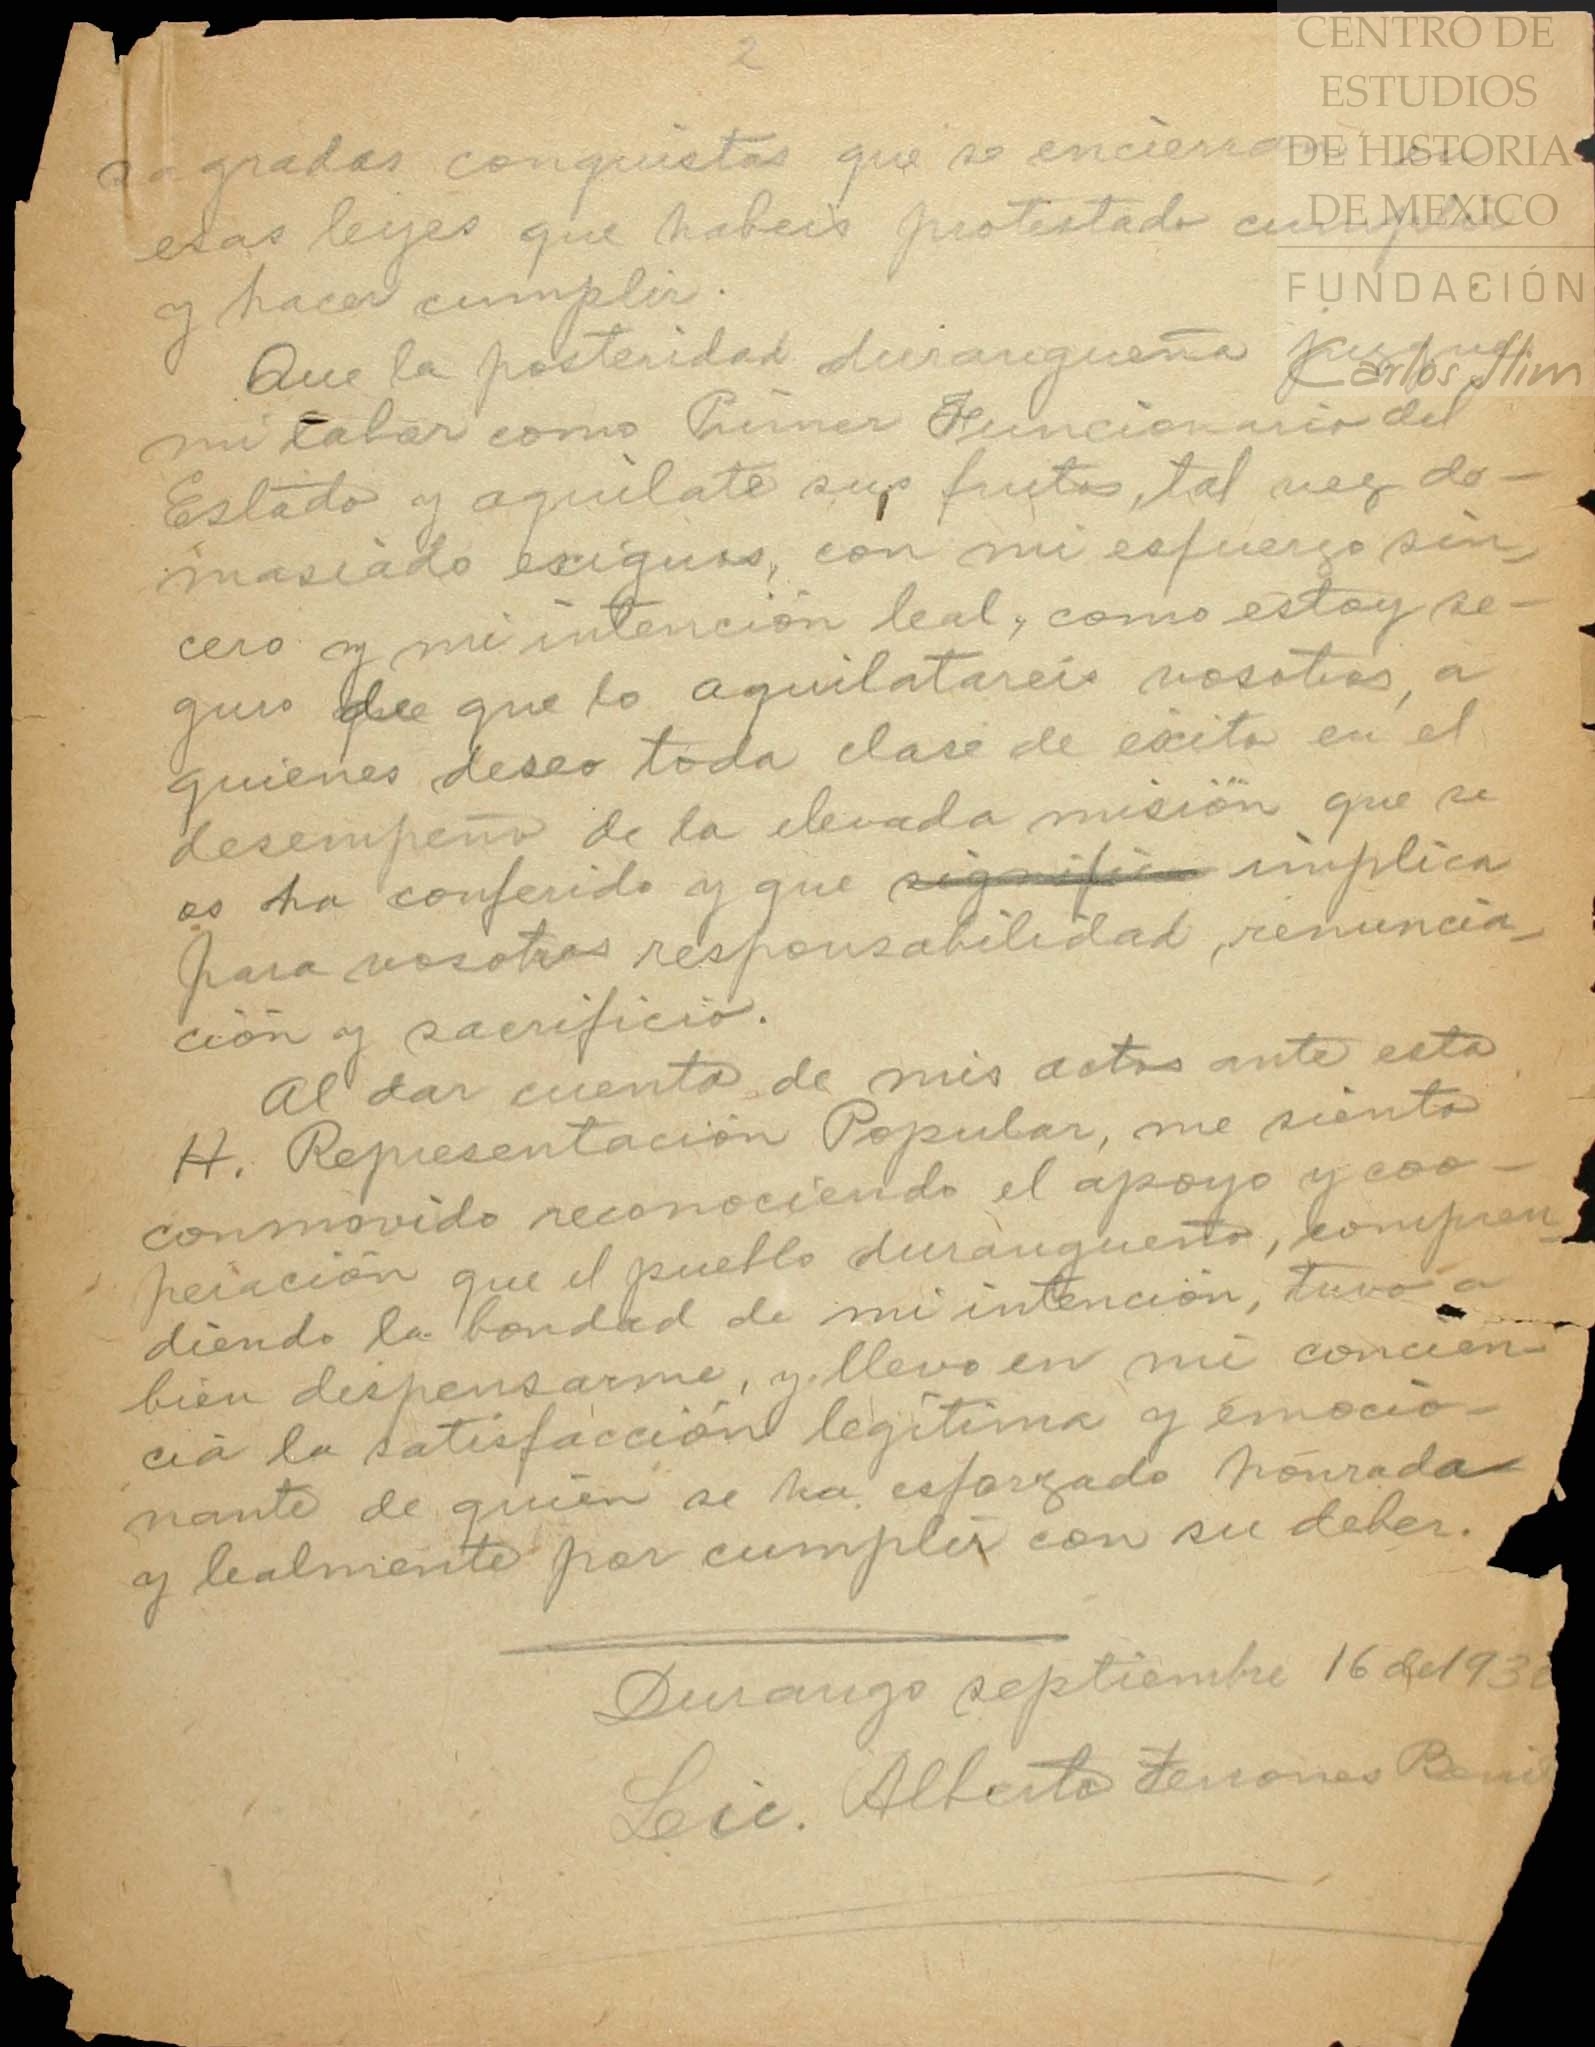 2
sagradas conquistas que se encierran en
esas leyes que habeis protestado cumplir
y hacer cumplir.
Que la posteridad durangueña juzgue
mi labor como Primer Funcionario del
Estado y aquilate sus frutos, tal vez de-
masiado exiguos, con mi esfuerzo sin-
cero y mi intención leal, como estoy se-
guro de que lo aquilatareis vosotros, a
quienes deseo toda clase de éxito en el
desempeño de la elevada misión que se
os ha conferido y que significa implica
para vosotros responsabilidad, renuncia-
ción y sacrificio.
Al dar cuenta de mis actos ante esta
H. Representación Popular, me siento
conmovido reconociendo el apoyo y coo-
peración que el pueblo durangueño, compren-
diendo la bondad de mi intención, tuvo a
bien dispensarme, y llevo en mi concien-
cia la satisfacción legítima y emocio-
nante de quien se ha esforzado honrada
y lealmente por cumplir con su deber.
Durango septiembre 16 de 193
Lic. Alberto Terrones Beni
CENTRO DE
ESTUDIOS
DE HISTORIA
DE MEXICO
FUNDACIÓN
Carlos Slim